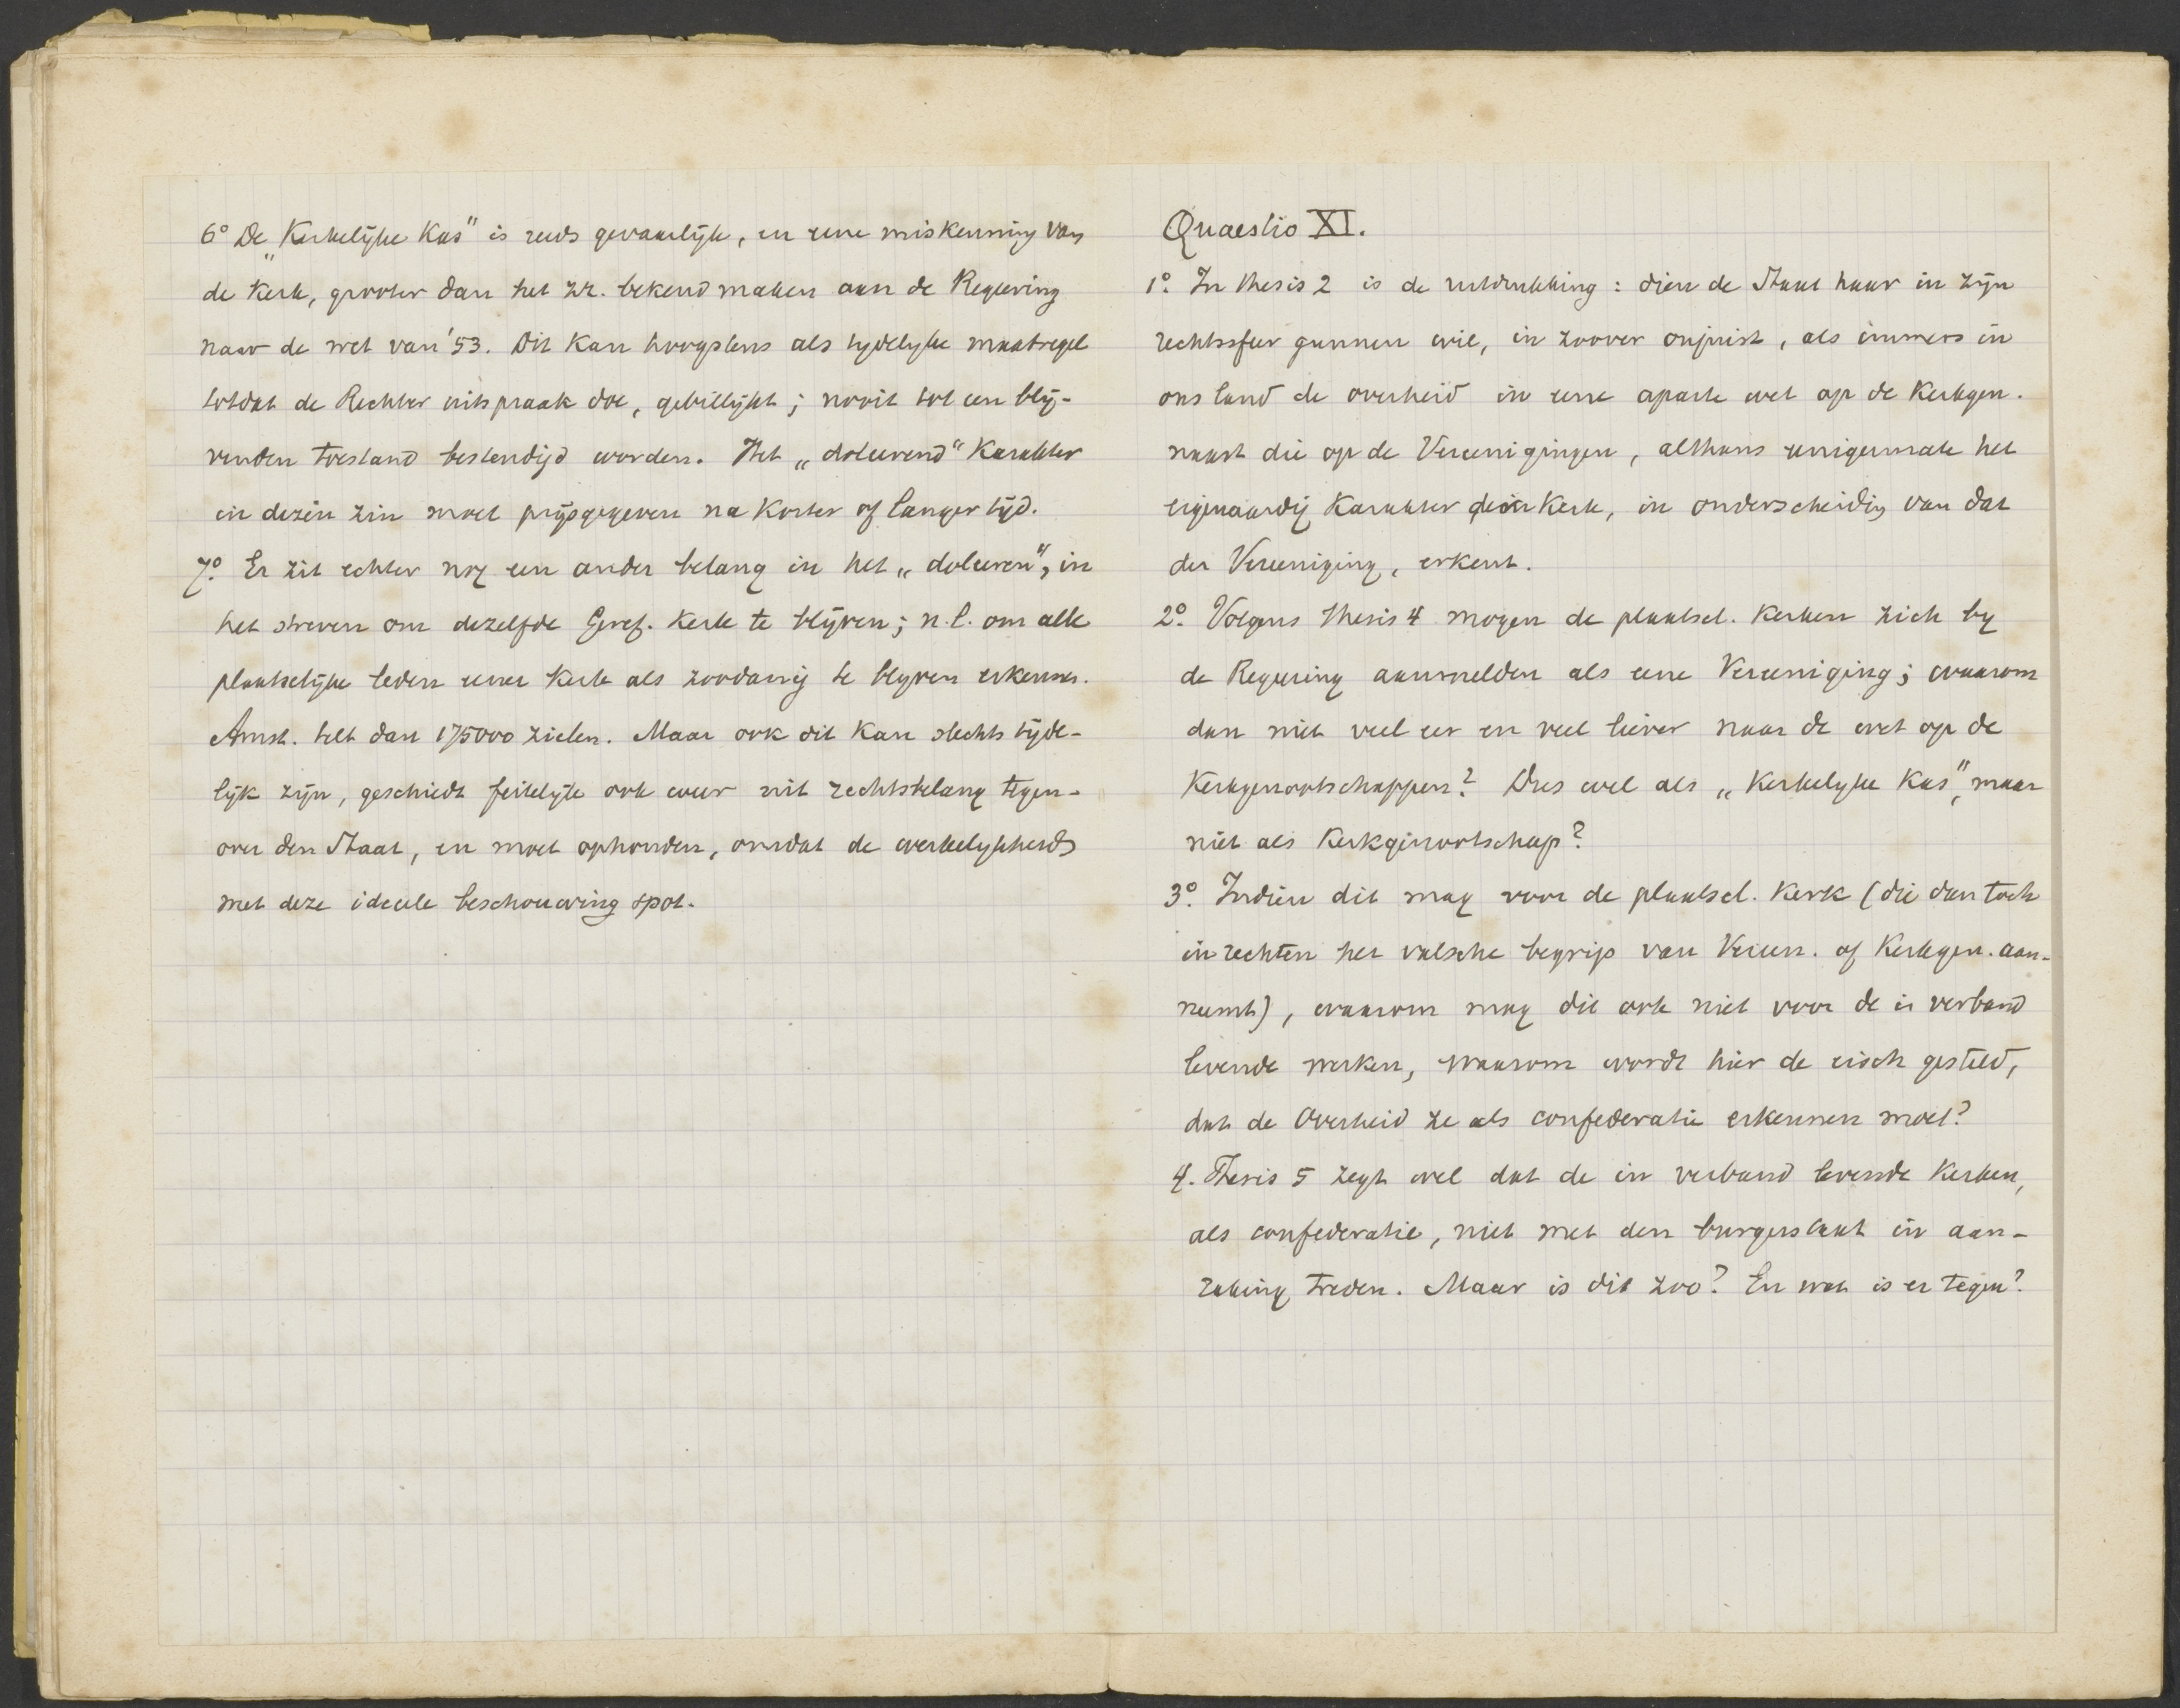 6° De „Kerkelijke Kas" is reeds gevaarlijk, en eene miskenning van
de Kerk, grooter dan het zr. bekend maken aan de Regeering
naar de wet van '53. Dit kan hoogstens als tydelyke maatregel
totdat de Rechter uitspraak doe, gebillijkt; nooit tot een blij-
venden toestand bestendigd worden. Het „doleerend" Karakter
in dezen zin moet prijsgegeven na korter of langer tijd.
7° Er zit echter nog een ander belang in het „doleeren", in
het streven om dezelfde Geref. Kerk te blijven; n.l. om alle
plaatselijke leden eener Kerk als zoodanig te blyven erkennen.
Amst. telt dan 175000 zielen. Maar ook dit kan slechts tijde-
lijk zijn, geschiedt feitelijk ook weer uit rechtsbelang tegen-
over den Staat, en moet ophouden, omdat de werkelijkheid
met deze ideeele beschouwing spot.
Quaestio XI.
1° In thesis 2 is de uitdrukking: dien de Staat haar in zijn
rechtssfeer gunnen wil, in zoover onjuist, als immers in
ons land de overheid in eene aparte wet op de Kerkgen.
naast die op de Vereenigingen, althans eenigermate het
eigenaardig Karakter der Kerk, in onderscheidig van dat
der Vereeniging, erkent.
2° Volgens thesis 4 mogen de plaatsel. Kerken zich by
de Regeering aanmelden als eene Vereeniging; waarom
dan niet veel eer en veel liever naar de wet op de
Kerkgenootschappen? Dus wel als „Kerkelyke Kas", maar
niet als Kerkgenootschap?
3° Indien dit mag voor de plaatsel. Kerk (die dan toch
in rechten het valsche begrip van Vereen. of Kerkgen. aan-
neemt), waarom mag dit ook niet voor de in verband
levende kerken, waarom wordt hier de eisch gesteld,
dat de Overheid ze als confederatie erkennen moet?
4. Thesis 5 zegt wel dat de in verband levende Kerken,
als confederatie, niet met den burgerstaat in aan-
raking treden. Maar is dit zoo? En wat is er tegen?